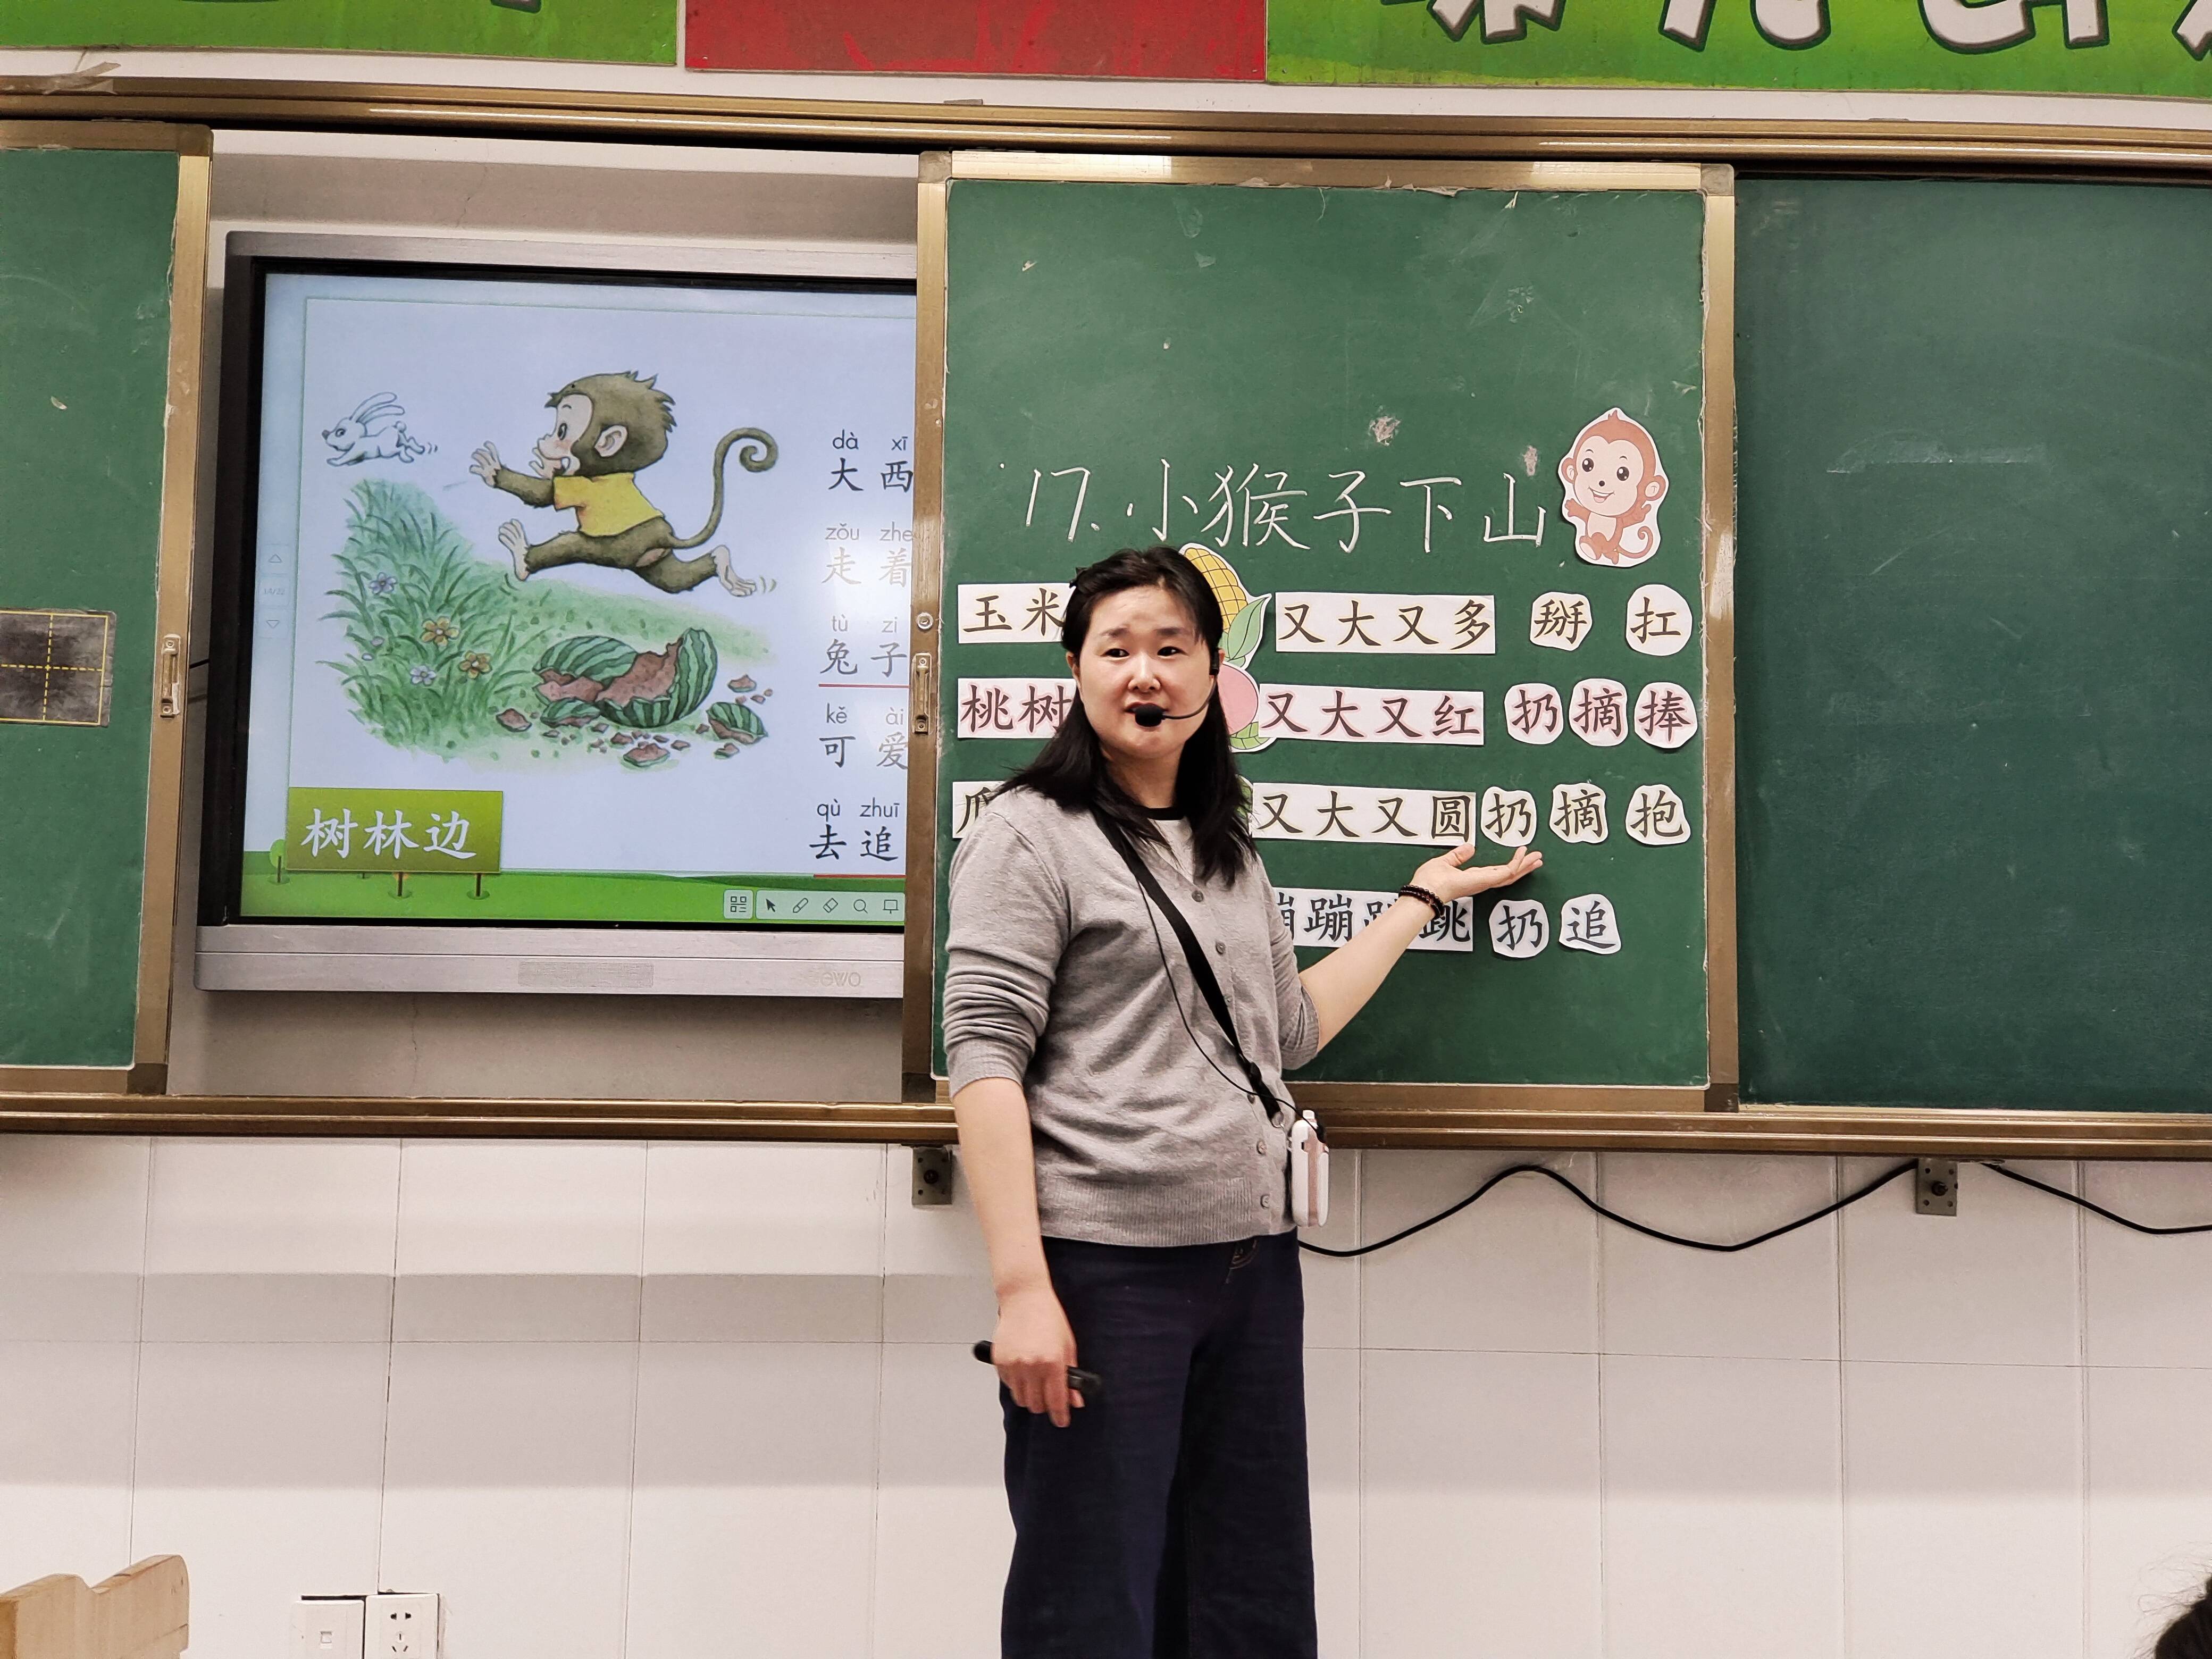 dà xī
大西
zǒu zhe
走着
tù zi
兔子
kě ài
可爱
qù zhuī
去追
树林边
17.小猴子下山
玉米 又大又多 掰 扛
桃树 又大又红 扔 摘 捧
瓜 又大又圆 扔 摘 抱
蹦蹦跳跳 扔 追